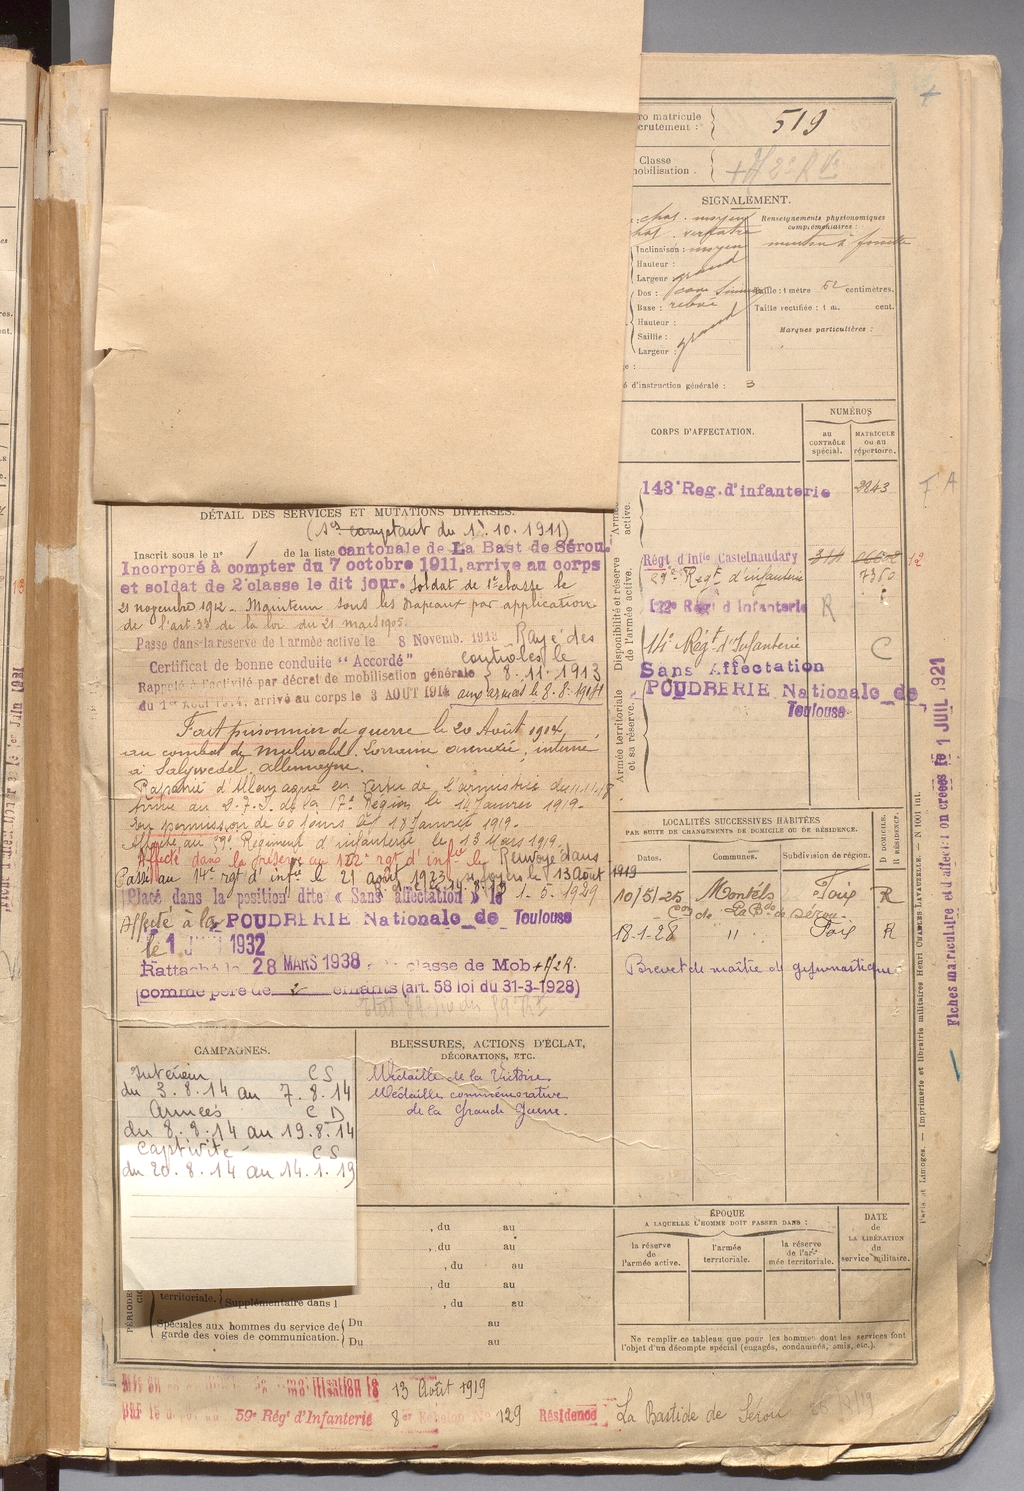 ro matricule
crutement :
519
Classe
nobilisation.
SIGNALEMENT.
: chat. moyen
Renseignements physionomiques
complémentaires :
hat. verdatre
Inclinaison : moyen
menton à fossette
Hauteur :
Largeur : grand
Dos :
Taille : 1 mètre 62 centimètres.
Base : relevé
Taille rectifiée : 1 m. cent.
Hauteur :
Saillie : grand
Marques particulières :
Largeur :
é d'instruction générale : 3
CORPS D'AFFECTATION.
NUMÉROS
au
CONTRÔLE
spécial.
MATRICULE
ou au
répertoire.
Armée
active.
143e Reg. d'infanterie
2243
F A
Disponibilité et réserve
de l'armée active.
Régt d'Infie Castelnaudary
59e Regt d'infanterie
7360
122e Régt d'Infanterie R
14e Régt d'Infanterie C
Armée territoriale
et sa réserve.
Sans Affectation
POUDRERIE Nationale de
Toulouse
DÉTAIL DES SERVICES ET MUTATIONS DIVERSES.
(Sce comptant du 1.10.1911)
Inscrit sous le n° 1 de la liste cantonale de La Bast de Sérou.
Incorporé à compter du 7 octobre 1911, arrive au corps
et soldat de 2e classe le dit jour. Soldat de 1e classe le
21 novembre 1912. Maintenu sous les drapeaux par application
de l'art. 33 de la loi du 21 mars 1905.
Passe dans la reserve de l'armée active le 8 Novemb. 1913 Rayé des
Certificat de bonne conduite "Accordé" contrôles le
Rappelé à l'activité par décret de mobilisation générale 8.11.1913
du 1er Aout 1914, arrivé au corps le 3 AOUT 1914 aux armées le 8.8.1914
Fait prisonnier de guerre le 20 Août 1914,
au combat de Mulwald Lorraine annexée, interné
à Salzwedel Allemagne.
Rapatrié d'Allemagne en vertu de l'armistice du 11.11.18
Arrivé au D.T.I. de la 17e Région le 14 Janvier 1919.
En permission de 60 jours le 18 Janvier 1919.
Affecté au 59e Régiment d'infanterie le 13 Mars 1919.
Affecté dans la réserve au 122e rgt d'infie le Renvoyé dans
Passé au 14e rgt d'infie le 21 août 1923 ses foyers le 13 Août 1919
Placé dans la position dite « Sans affectation » le 1.5.1929
Affecté à la POUDRERIE Nationale de Toulouse
le 1 JUIN 1932
Rattaché le 28 MARS 1938 classe de Mob + 2 R.
comme père de 2 enfants (art. 58 loi du 31-3-1928)
LOCALITÉS SUCCESSIVES HABITÉES
PAR SUITE DE CHANGEMENTS DE DOMICILE OU DE RÉSIDENCE.
Dates.
Communes.
Subdivision de région.
D DOMICILE.
R RÉSIDENCE.
10/5/25 Montels Foix R
Con de La Bde de Sérou
18-1-28 " Foix R
Brevet de maître de gymnastique
CAMPAGNES.
Intérieur CS
du 3.8.14 au 7.8.14
Armées C D
du 8.8.14 au 19.8.14
Captivité CS
du 20.8.14 au 14.1.19
BLESSURES, ACTIONS D'ÉCLAT,
DÉCORATIONS, ETC.
Médaille de la Victoire.
Médaille commémorative
de la Grande Guerre.
, du au
, du au
, du au
territoriale. Supplémentaire dans l , du au
Spéciales aux hommes du service de
garde des voies de communication.
Du au
Du au
ÉPOQUE
A LAQUELLE L'HOMME DOIT PASSER DANS :
la réserve
de
l'armée active.
l'armée
territoriale.
la réserve
de l'ar-
mée territoriale.
DATE
de
LA LIBÉRATION
du
service militaire.
Ne remplir ce tableau que pour les hommes dont les services font
l'objet d'un décompte spécial (engagés, condamnés, omis, etc.).
13 Août 1919
59e Régt d'Infanterie 8er Echelon No 129 Résidence La Bastide de Sérou
Paris et Limoges. — Imprimerie et librairie militaires Henri CHARLES-LAVAUZELLE. — N 1001 int.
Fiches matriculaire et d'affectation créées le 1 JUIL 1921